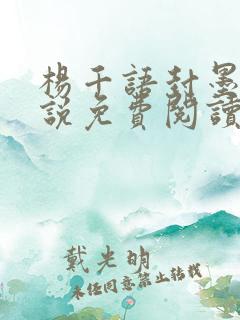 楊千語封墨
說免費閱讀
戴光明
未經同意禁止轉載